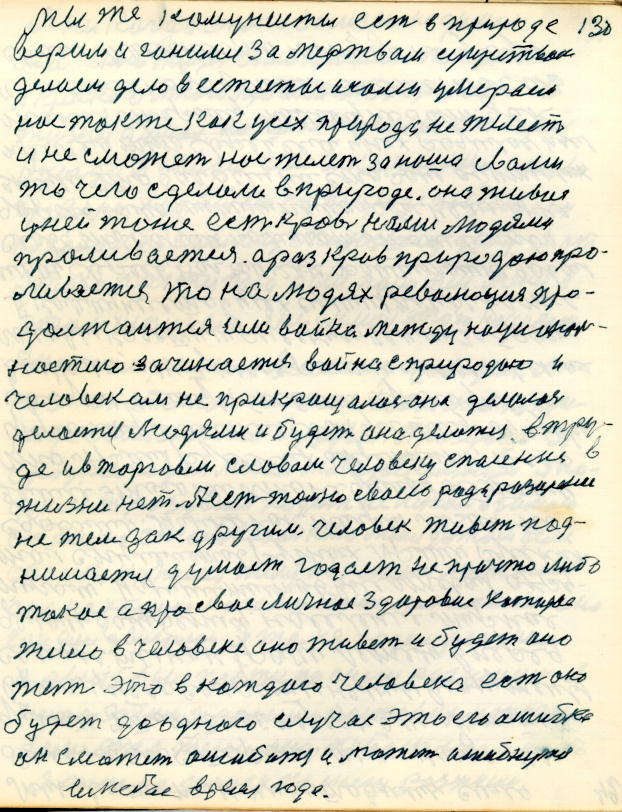 Мы же комунисты ест в природе 130
верим и гоним за мертвам
делаем дело в умераем
нас также как усех природа не жилеет
и не сможет нас желет за наша свами
то чего сделали в природе. она живая
уней тоже ест кров нами людями
проливается. а раз кров природаю про-
ливается, то на людях революция про-
должаится или война между национ
ностию зачинается война с природаю и
человекам не прикращалася она делалася
делаетя людями и будет она делатся. в тру-
де и в торговли словам человеку спасения в
жизни нет. Лест толко своего рода
не тем дак другим. человек живет под-
нимается думает гадает не прачто либо
такое а про свое личное здоровие каторае
жило в человеке оно живет и будет оно
жит это в каждаго человека ест оно
будет до одного случае это его ашибка
он сможет ашибатя и может ашибнутся
время года.